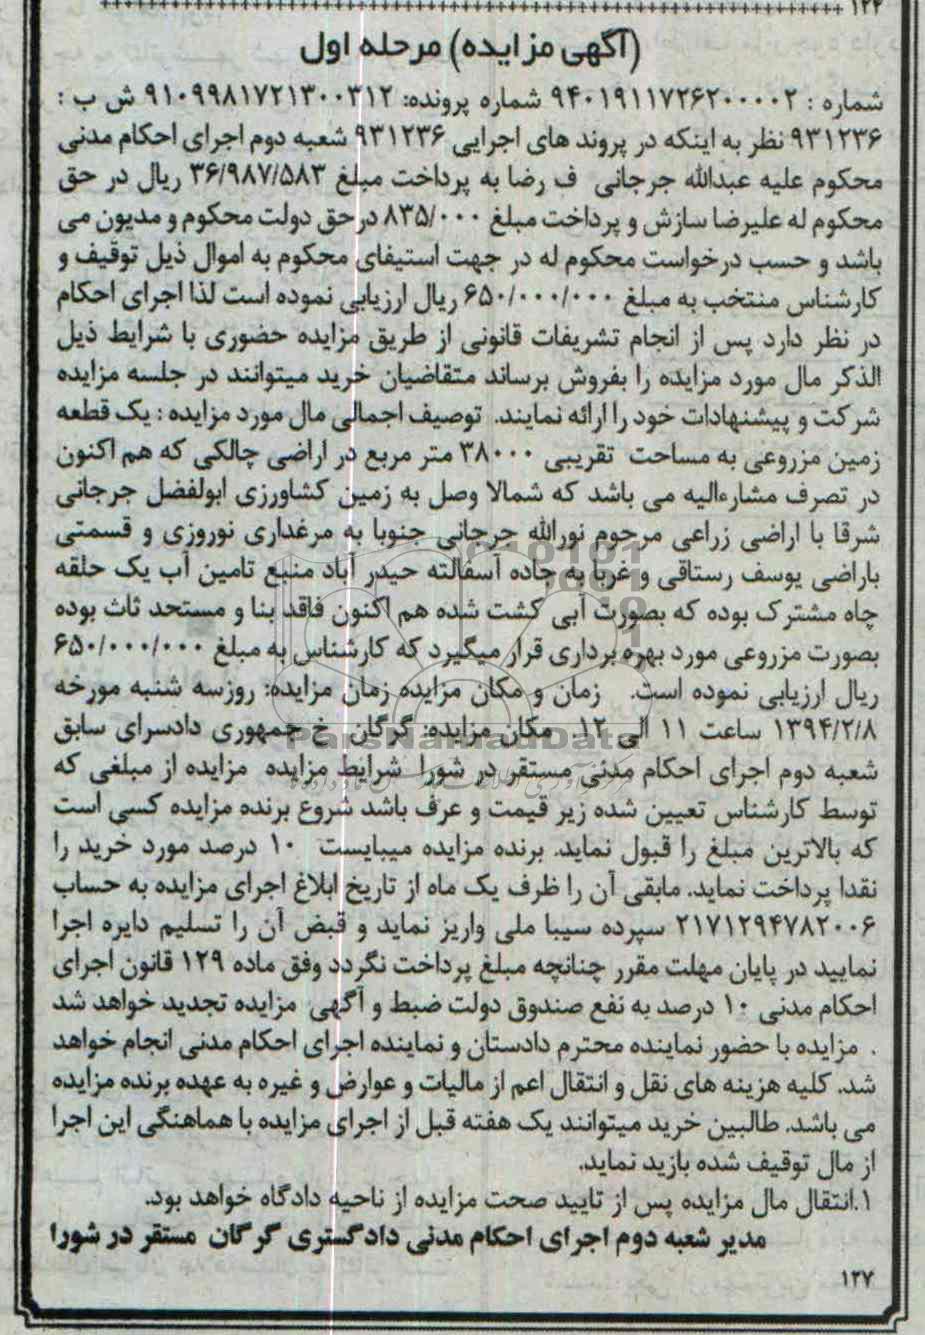 ۱۲۴
(آگهی مزایده) مرحله اول
شماره : ۹۴۰۱۹۱۱۷۲۶۲۰۰۰۰۲ شماره پرونده: ۹۱۰۹۹۸۱۷۲۱۳۰۰۳۱۲ ش ب :
۹۳۱۲۳۶ نظر به اینکه در پروند های اجرایی ۹۳۱۲۳۶ شعبه دوم اجرای احکام مدنی
محکوم علیه عبدالله جرجانی ف رضا به پرداخت مبلغ ۳۶/۹۸۷/۵۸۳ ریال در حق
محکوم له علیرضا سازش و پرداخت مبلغ ۸۳۵/۰۰۰ درحق دولت محکوم و مدیون می
باشد و حسب درخواست محکوم له در جهت استیفای محکوم به اموال ذیل توقیف و
کارشناس منتخب به مبلغ ۶۵۰/۰۰۰/۰۰۰ ریال ارزیابی نموده است لذا اجرای احکام
در نظر دارد پس از انجام تشریفات قانونی از طریق مزایده حضوری با شرایط ذیل
الذکر مال مورد مزایده را بفروش برساند متقاضیان خرید میتوانند در جلسه مزایده
شرکت و پیشنهادات خود را ارائه نمایند. توصیف اجمالی مال مورد مزایده : یک قطعه
زمین مزروعی به مساحت تقریبی ۳۸۰۰۰ متر مربع در اراضی چالکی که هم اکنون
در تصرف مشارءالیه می باشد که شمالا وصل به زمین کشاورزی ابولفضل جرجانی
شرقا با اراضی زراعی مرحوم نورالله جرجانی جنوبا به مرغداری نوروزی و قسمتی
باراضی یوسف رستاقی و غربا به جاده آسفالته حیدر آباد منبع تامین آب یک حلقه
چاه مشترک بوده که بصورت آبی کشت شده هم اکنون فاقد بنا و مستحد ثاث بوده
بصورت مزروعی مورد بهره برداری قرار میگیرد که کارشناس به مبلغ ۶۵۰/۰۰۰/۰۰۰
ریال ارزیابی نموده است. زمان و مکان مزایده زمان مزایده: روزسه شنبه مورخه
۱۳۹۴/۲/۸ ساعت ۱۱ الی ۱۲. مکان مزایده: گرگان خ جمهوری دادسرای سابق
ParsNamadData
شعبه دوم اجرای احکام مدنی مستقر در شورا شرایط مزایده مزایده از مبلغی که
توسط کارشناس تعیین شده زیر قیمت و عرف باشد شروع برنده مزایده کسی است
که بالاترین مبلغ را قبول نماید. برنده مزایده میبایست ۱۰ درصد مورد خرید را
نقدا پرداخت نماید. مابقی آن را ظرف یک ماه از تاریخ ابلاغ اجرای مزایده به حساب
۲۱۷۱۲۹۴۷۸۲۰۰۶ سپرده سیبا ملی واریز نماید و قبض آن را تسلیم دایره اجرا
نمایید در پایان مهلت مقرر چنانچه مبلغ پرداخت نگردد وفق ماده ۱۲۹ قانون اجرای
احکام مدنی ۱۰ درصد به نفع صندوق دولت ضبط و آگهی مزایده تجدید خواهد شد
. مزایده با حضور نماینده محترم دادستان و نماینده اجرای احکام مدنی انجام خواهد
شد. کلیه هزینه های نقل و انتقال اعم از مالیات و عوارض و غیره به عهده برنده مزایده
می باشد. طالبین خرید میتوانند یک هفته قبل از اجرای مزایده با هماهنگی این اجرا
از مال توقیف شده بازید نماید.
۱.انتقال مال مزایده پس از تایید صحت مزایده از ناحیه دادگاه خواهد بود.
مدیر شعبه دوم اجرای احکام مدنی دادگستری گرگان مستقر در شورا
۱۲۷